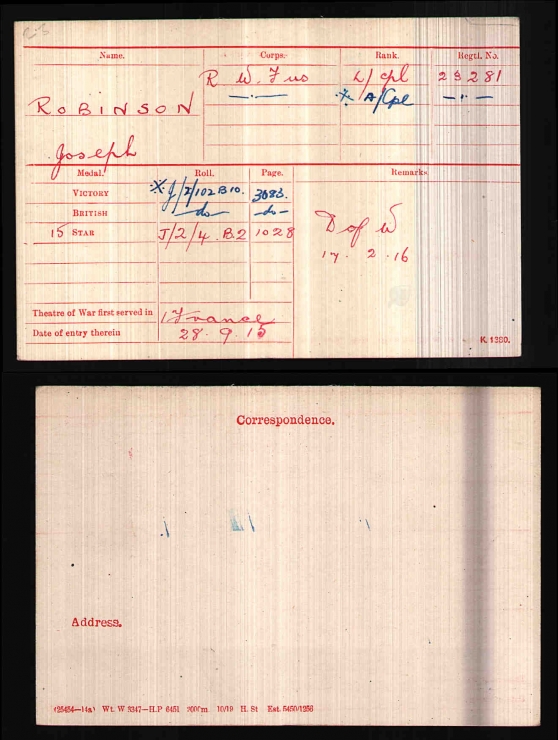 Name. Corps. Rank. Regtl. No.
R W. Fus L/Cpl 23281
ROBINSON —"— ※ A/Cpl —"—
Joseph
Medal. Roll. Page. Remarks
VICTORY ※ J/2/102B10. 3083.
BRITISH —do— —do—
15 STAR J/2/4 B.2 1028
D of W
17. 2. 16
Theatre of War first served in (1) France
Date of entry therein 28. 9. 15
K. 1380.
Correspondence.
Address.
Wt. W 3347—H.P 6451 200m. 10/19 H. St Est. 5450/1256